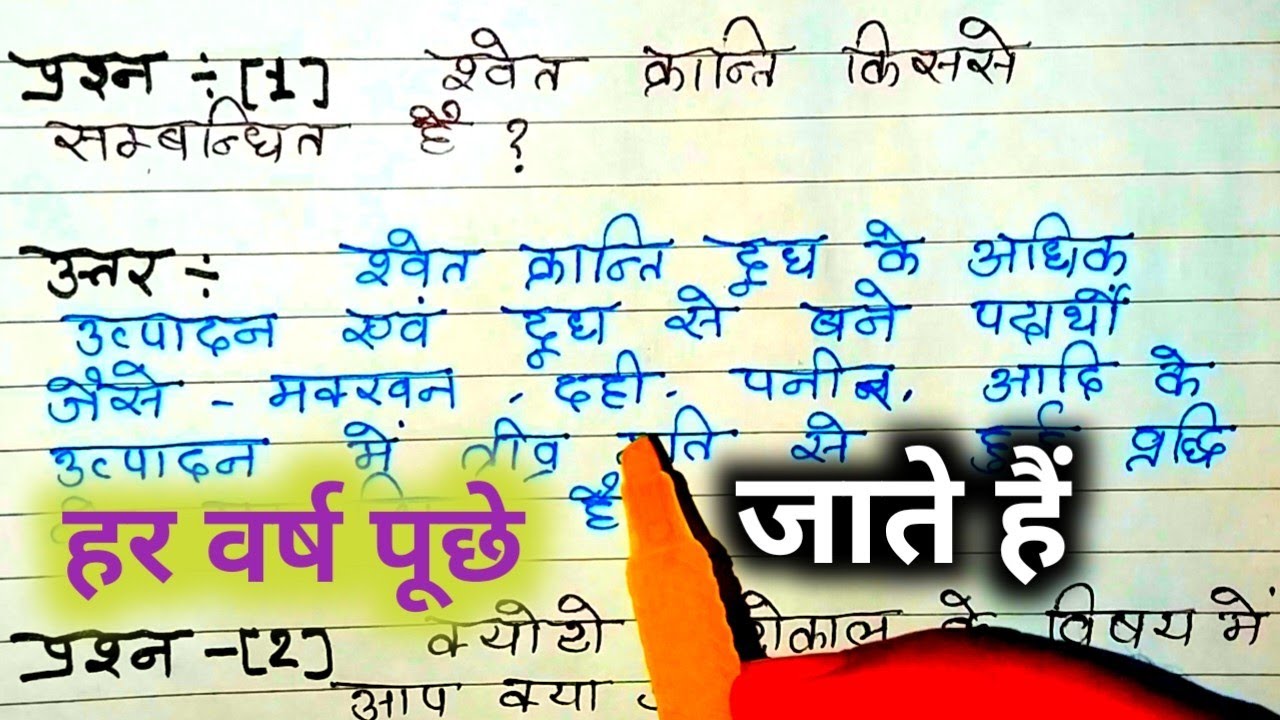 प्रश्न ÷ [1] श्वेत क्रान्ति किससे
सम्बन्धित है ?
उत्तर ÷ श्वेत क्रान्ति दूध के अधिक
उत्पादन एवं दूध से बने पदार्थों
जैसे - मक्खन , दही, पनीर, आदि के
उत्पादन में तीव्र से वृद्धि
है
हर वर्ष पूछे जाते हैं
प्रश्न -[2] क्योटो के विषय में
आप क्या